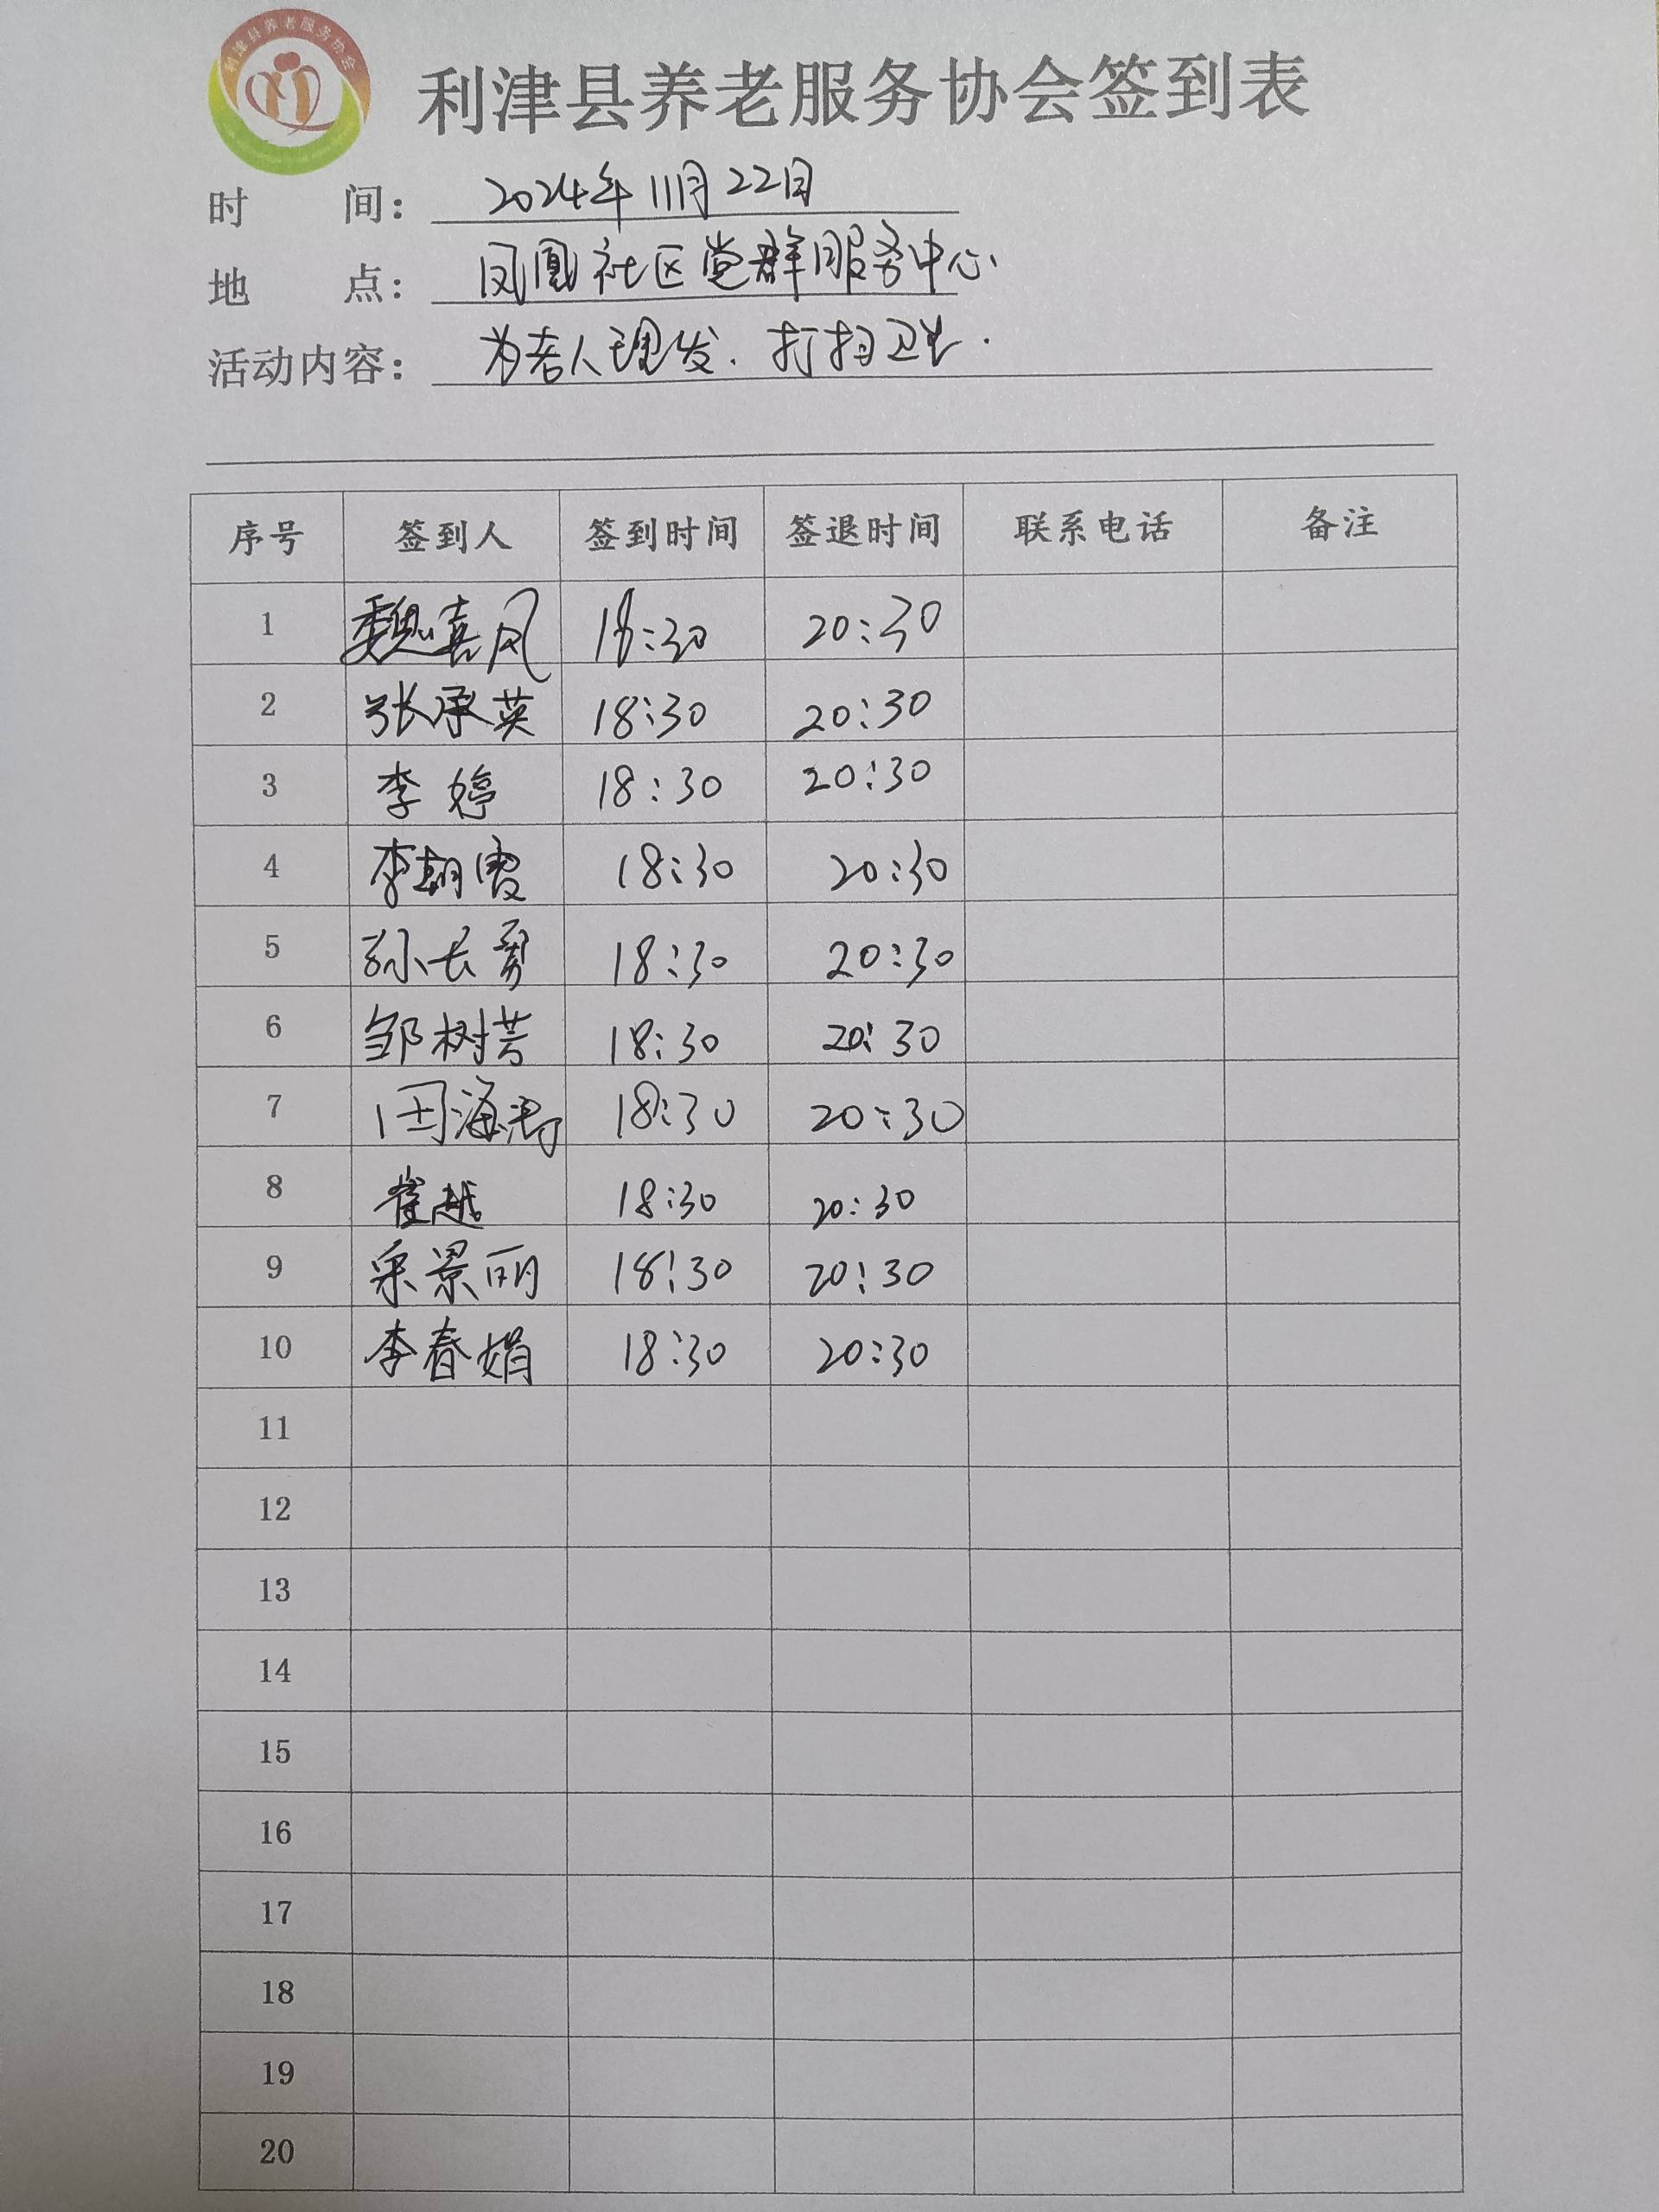 利津县养老服务协会
利津县养老服务协会签到表
时 间： 2024年11月22日
地 点： 凤凰社区党群服务中心
活动内容： 为老人理发、打扫卫生.
序号 签到人 签到时间 签退时间 联系电话 备注
1 魏喜凤 18:30 20:30
2 张承英 18:30 20:30
3 李婷 18:30 20:30
4 李朝霞 18:30 20:30
5 孙长勇 18:30 20:30
6 邹树芸 18:30 20:30
7 田海涛 18:30 20:30
8 崔越 18:30 20:30
9 景丽 18:30 20:30
10 李春娟 18:30 20:30
11
12
13
14
15
16
17
18
19
20